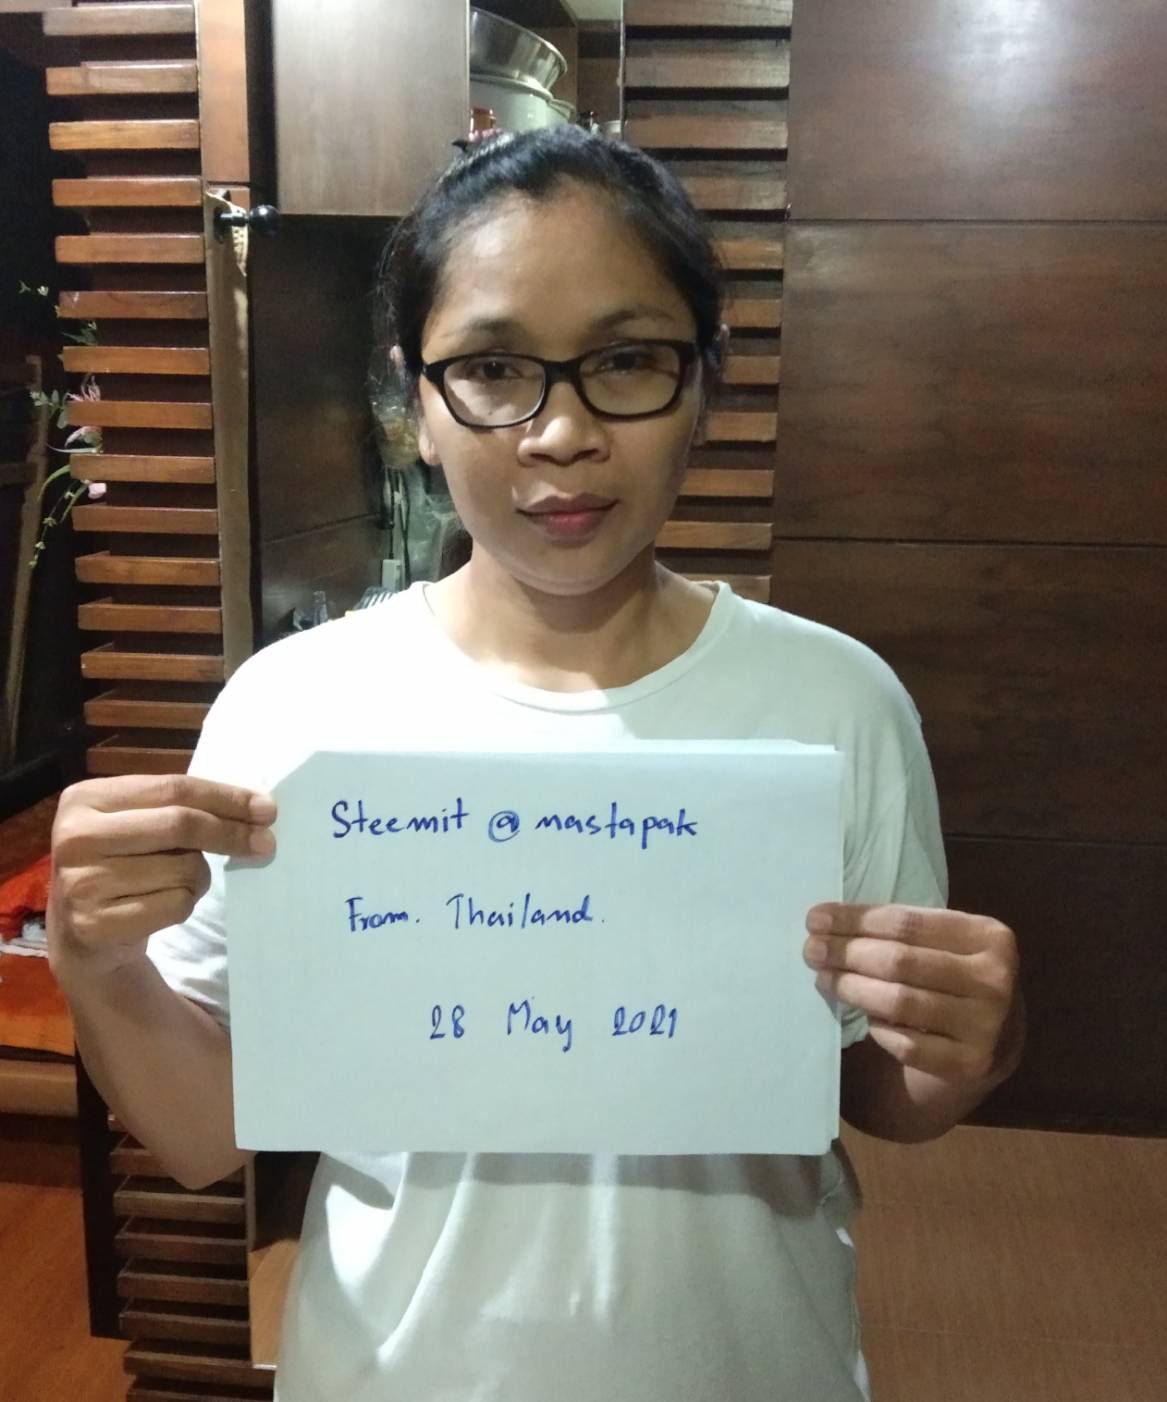 Steemit @ mastapak
From. Thailand.
28 May 2021